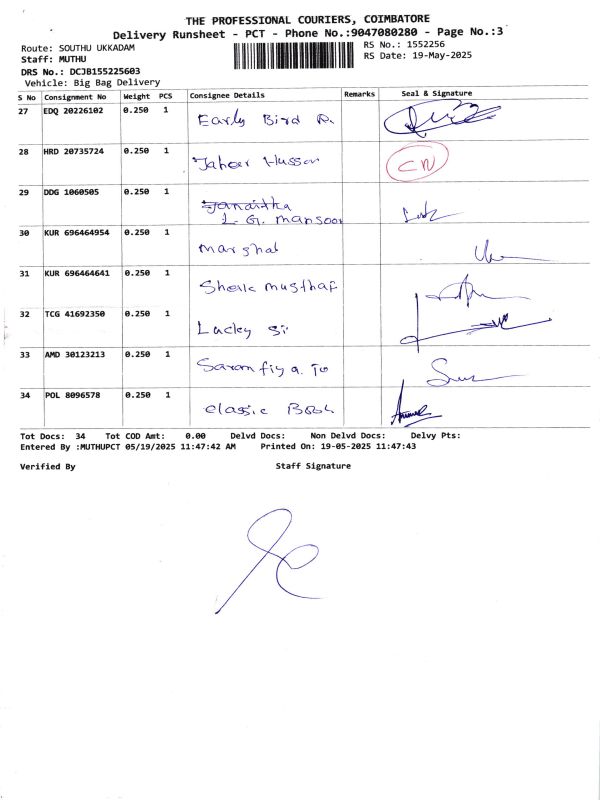 THE PROFESSIONAL COURIERS, COIMBATORE
Delivery Runsheet - PCT - Phone No.:9047080280 - Page No.:3
Route: SOUTHU UKKADAM
RS No.: 1552256
Staff: MUTHU
RS Date: 19-May-2025
DRS No.: DCJB155225603
Vehicle: Big Bag Delivery
S No Consignment No Weight PCS Consignee Details Remarks Seal & Signature
27 EDQ 20226102 0.250 1 Early Bird
28 HRD 20735724 0.250 1 Jaheer Hussan CN
29 DDG 1060505 0.250 1
L. G. mansoor
30 KUR 696464954 0.250 1 marshal
31 KUR 696464641 0.250 1 Sheik musthaf
32 TCG 41692350 0.250 1 Lucky
33 AMD 30123213 0.250 1
34 POL 8096578 0.250 1 classic
Tot Docs: 34 Tot COD Amt: 0.00 Delvd Docs: Non Delvd Docs: Delvy Pts:
Entered By :MUTHUPCT 05/19/2025 11:47:42 AM Printed On: 19-05-2025 11:47:43
Verified By Staff Signature